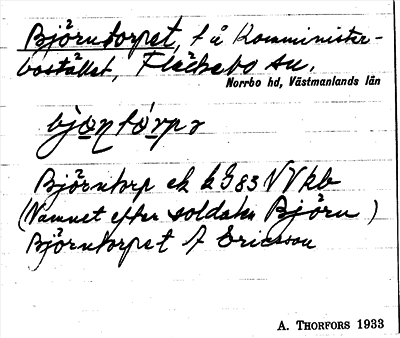 Björntorpet, t å Komminister-
bostället, Fläckebo sn,
Norrbo hd, Västmanlands län
bjo̱ntårpr
Björntorp ek k G 83 NV kb
(Namnet efter soldaten Björn)
Björntorpet A Ericsson
A. THORFORS 1933